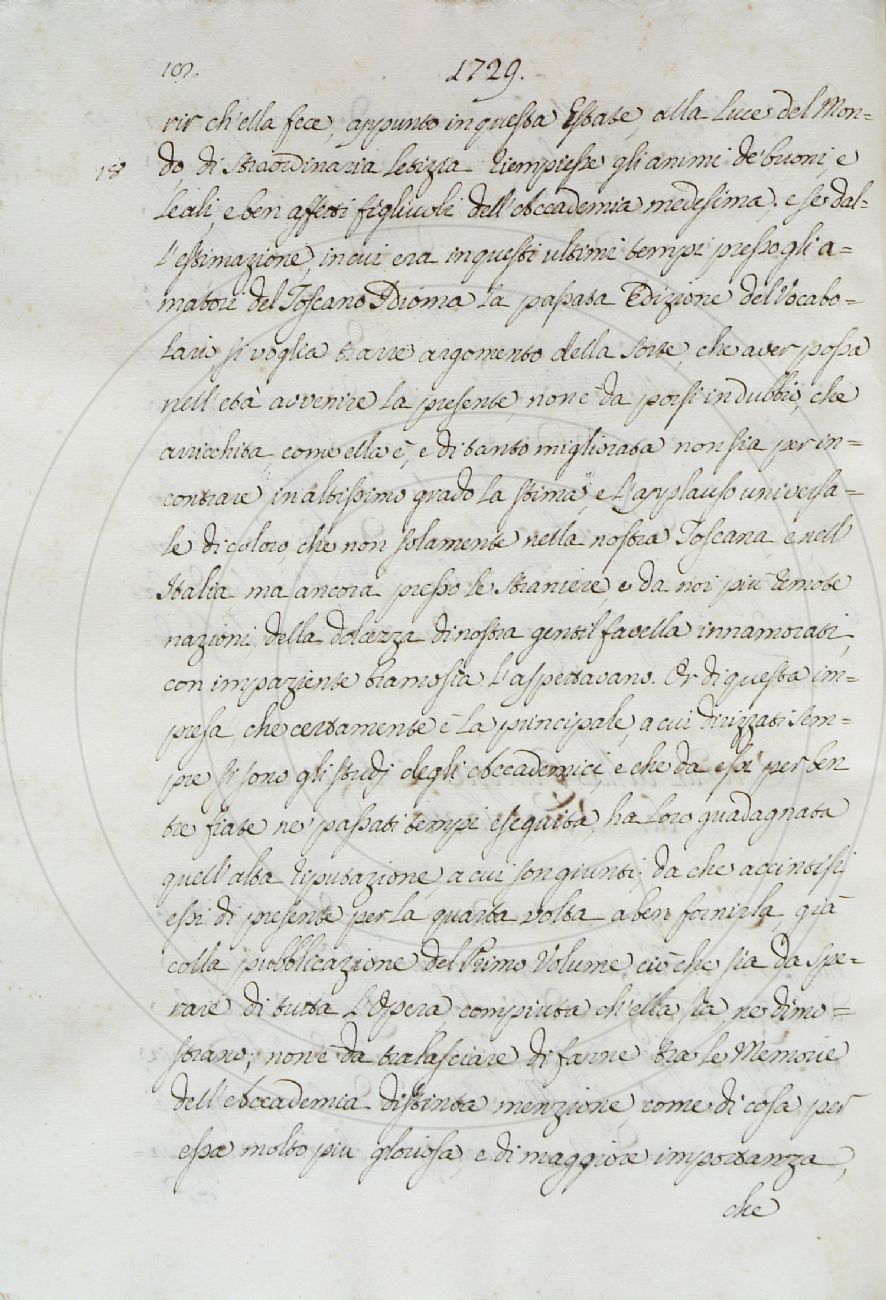 1729.
rir ch'ella fece, appunto in questa Estate, alla Luce del Mon=
do, di straordinaria Letizia riempiesse gli animi de' buoni, e
Leali, e ben affetti figliuoli dell'Accademia medesima; e se dal=
l'estimazione, in cui era in questi ultimi tempi presso gli a=
matori del Toscano Idioma la passata Edizione del Vocabo=
lario si voglia trarre argomento della sorte, che aver possa
nell'età avvenire la presente non è da porsi in dubbio, che
arricchita, come ella è, e di tanto migliorata non sia per in=
contrare in altissimo grado la stima, e l'applauso universa=
le di coloro, che non solamente nella nostra Toscana, e nell'
Italia, ma ancora presso le straniere, e da noi più remote
nazioni, della dolcezza di nostra gentil favella innamorati,
con impaziente bramosia l'aspettavano. Or di questa im=
presa, che certamente è la principale, a cui dirizzati sem=
pre si sono gli studj degli Accademici, e che da essi per ben
tre fiate ne' passati tempi eseguita, ha loro guadagnata
quell'alta riputazione, a cui son giunti; da che accintisi
essi di presente per la quarta volta a ben fornirla, già
colla pubblicazione del Primo Volume ciò che sia da spe=
rare di tutta l'Opera, compiuta ch'ella sia, ne dimo=
strano; non è da tralasciare di farne tra le Memorie
dell'Accademia distinta menzione, come di cosa per
essa molto più gloriosa, e di maggiore importanza,
che